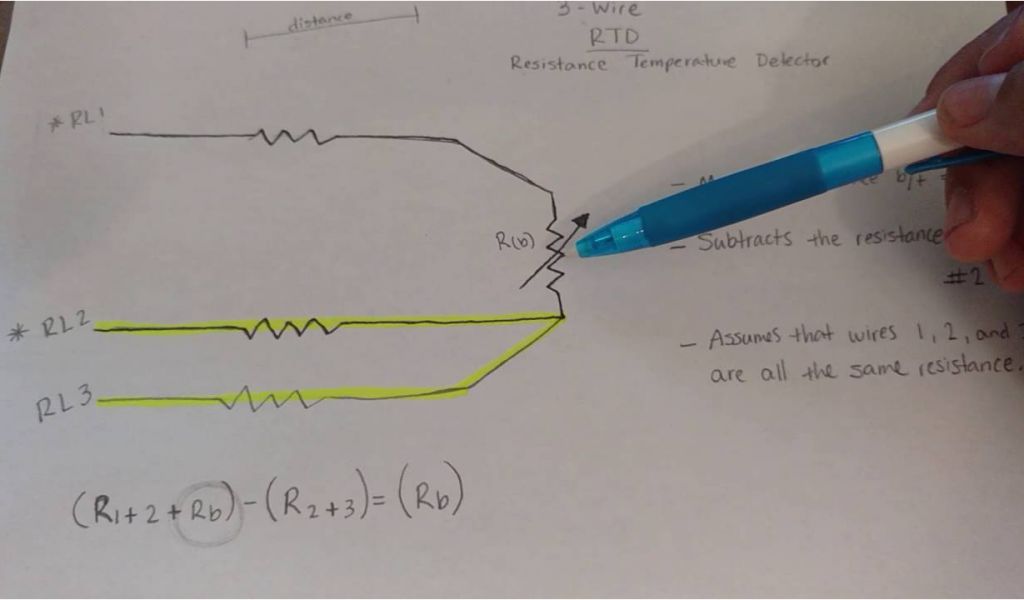 distance
3-Wire
RTD
Resistance Temperature Detector
* RL1
b/t =
R(b)
- Subtracts the resistance
#2
* RL2
- Assumes that wires 1, 2, and
are all the same resistance.
RL3
(R1+2 + Rb) - (R2+3) = (Rb)